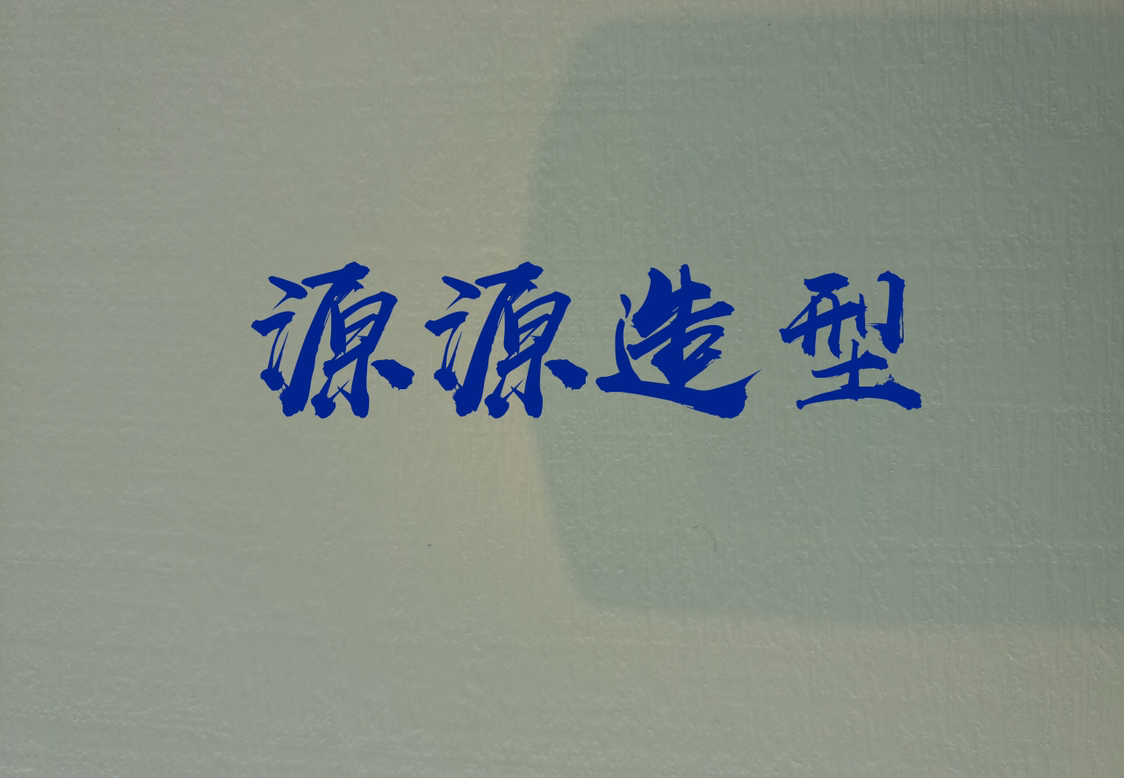 源源造型